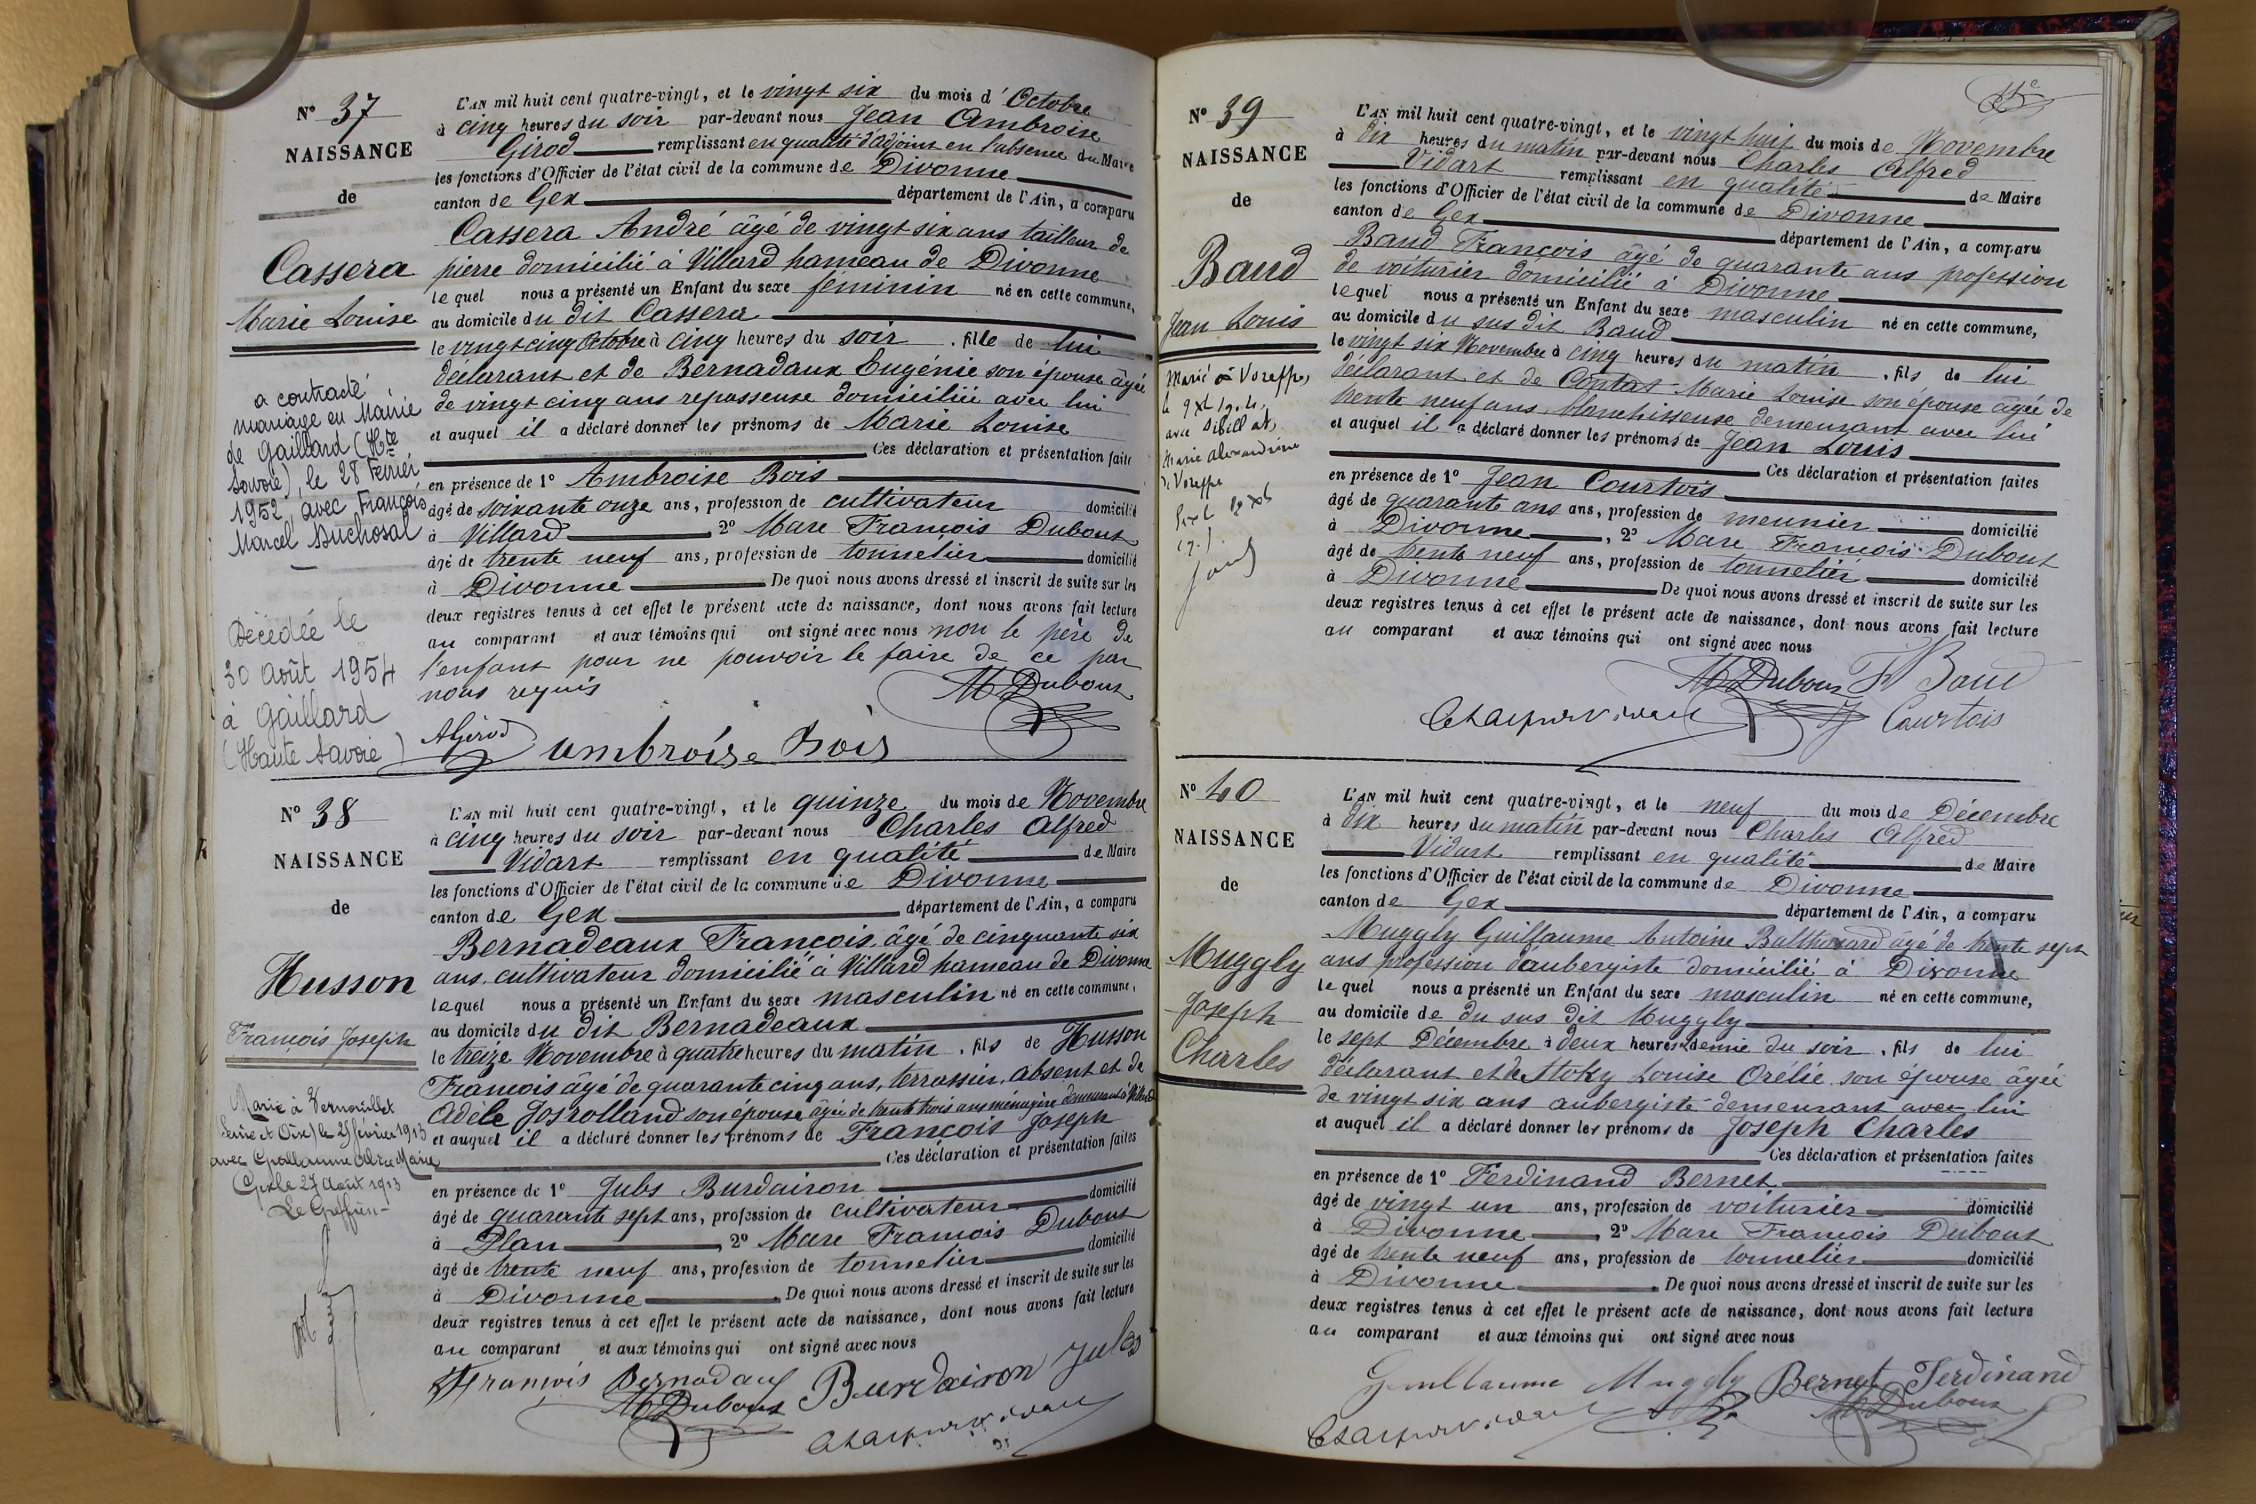 N° 37
NAISSANCE
de
Cassera
Marie Louise
a contracté
mariage en Mairie
de Gaillard (Hte
Savoie), le 28 Février
1952, avec François
Marcel Duchosal
Décédée le
30 août 1954
à Gaillard
(Haute Savoie)
L'AN mil huit cent quatre-vingt, et le vingt six du mois d'Octobre
à cinq heures du soir par-devant nous Jean Ambroise
Girod remplissant en qualité d'adjoint en l'absence du Maire
les fonctions d'Officier de l'état civil de la commune de Divonne
canton de Gex département de l'Ain, a comparu
Cassera André âgé de vingt six ans tailleur de
pierre domicilié à Villard hameau de Divonne
lequel nous a présenté un Enfant du sexe féminin né en cette commune,
au domicile du dit Cassera
le vingt cinq Octobre à cinq heures du soir , fille de lui
déclarant et de Bernadaux Eugénie son épouse âgée
de vingt cinq ans repasseuse domiciliée avec lui
et auquel il a déclaré donner les prénoms de Marie Louise
Ces déclaration et présentation faites
en présence de 1° Ambroise Bois
âgé de soixante onze ans, profession de cultivateur domicilié
à Villard 2° Marc François Dubout
âgé de trente neuf ans, profession de tonnelier domicilié
à Divonne De quoi nous avons dressé et inscrit de suite sur les
deux registres tenus à cet effet le présent acte de naissance, dont nous avons fait lecture
au comparant et aux témoins qui ont signé avec nous non le père de
l'enfant pour ne pouvoir le faire de ce par
nous requis
M Dubout
A Girod Ambroise Bois
N° 38
NAISSANCE
de
Husson
François Joseph
Marié à Vernouillet
(Seine et Oise) le 25 février 1913
avec
Gex le 27 Août 1913
Le Greffier
L'AN mil huit cent quatre-vingt, et le quinze du mois de Novembre
à cinq heures du soir par-devant nous Charles Alfred
Vidart remplissant en qualité de Maire
les fonctions d'Officier de l'état civil de la commune de Divonne
canton de Gex département de l'Ain, a comparu
Bernadeaux François, âgé de cinquante six
ans, cultivateur domicilié à Villard hameau de Divonne
lequel nous a présenté un Enfant du sexe masculin né en cette commune,
au domicile du dit Bernadeaux
le treize Novembre à quatre heures du matin , fils de Husson
François âgé de quarante cinq ans, terrassier, absent et de
Adèle Josrolland son épouse âgée de trente trois ans ménagère demeurant à Villard
et auquel il a déclaré donner les prénoms de François Joseph
Ces déclaration et présentation faites
en présence de 1° Jules Burdairon
âgé de quarante sept ans, profession de cultivateur domicilié
à Plan , 2° Marc François Dubout
âgé de trente neuf ans, profession de tonnelier domicilié
à Divonne De quoi nous avons dressé et inscrit de suite sur les
deux registres tenus à cet effet le présent acte de naissance, dont nous avons fait lecture
au comparant et aux témoins qui ont signé avec nous
François Bernadaux Burdairon Jules
M Dubout
N° 39
NAISSANCE
de
Baud
Jean Louis
Marié à Voreppe,
avec Sibillat,
Marie Alexandrine
de Voreppe
L'AN mil huit cent quatre-vingt, et le vingt huit du mois de Novembre
à dix heures du matin par-devant nous Charles Alfred
Vidart remplissant en qualité de Maire
les fonctions d'Officier de l'état civil de la commune de Divonne
canton de Gex département de l'Ain, a comparu
Baud François âgé de quarante ans profession
de voiturier domicilié à Divonne
lequel nous a présenté un Enfant du sexe masculin né en cette commune,
au domicile du sus dit Baud
le vingt six Novembre à cinq heures du matin , fils de lui
déclarant et de Contat Marie Louise son épouse âgée de
trente neuf ans blanchisseuse demeurant avec lui
et auquel il a déclaré donner les prénoms de Jean Louis
Ces déclaration et présentation faites
en présence de 1° Jean Courtois
âgé de quarante ans ans, profession de meunier domicilié
à Divonne , 2° Marc François Dubout
âgé de trente neuf ans, profession de tonnelier domicilié
à Divonne De quoi nous avons dressé et inscrit de suite sur les
deux registres tenus à cet effet le présent acte de naissance, dont nous avons fait lecture
au comparant et aux témoins qui ont signé avec nous
M Dubout F Baud
J Courtois
N° 40
NAISSANCE
de
Muggly
Joseph
Charles
L'AN mil huit cent quatre-vingt, et le neuf du mois de Décembre
à dix heures du matin par-devant nous Charles Alfred
Vidart remplissant en qualité de Maire
les fonctions d'Officier de l'état civil de la commune de Divonne
canton de Gex département de l'Ain, a comparu
Muggly Guillaume Antoine Balthazard âgé de trente sept
ans profession d'aubergiste domicilié à Divonne
lequel nous a présenté un Enfant du sexe masculin né en cette commune,
au domicile de du sus dit Muggly
le sept Décembre à deux heures & demie du soir , fils de lui
déclarant et de Stoky Louise Orélie son épouse âgée
de vingt six ans aubergiste demeurant avec lui
et auquel il a déclaré donner les prénoms de Joseph Charles
Ces déclaration et présentation faites
en présence de 1° Ferdinand Bernet
âgé de vingt un ans, profession de voiturier domicilié
à Divonne 2° Marc François Dubout
âgé de trente neuf ans, profession de tonnelier domicilié
à Divonne De quoi nous avons dressé et inscrit de suite sur les
deux registres tenus à cet effet le présent acte de naissance, dont nous avons fait lecture
au comparant et aux témoins qui ont signé avec nous
Guillaume Muggly Bernet Ferdinand
M Dubout